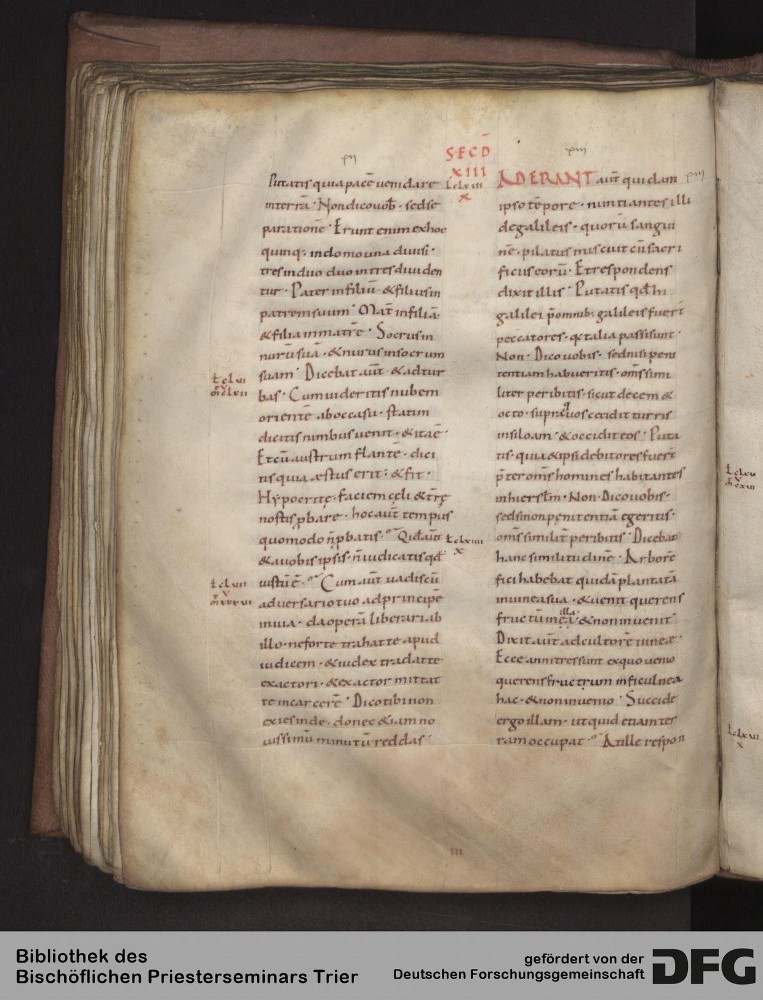 SECD
XIII
Putatis quia pacē ueni dare
in terrā · Non dico uob · sed se
parationē · Erunt enim ex hoc
quinq; in domo una diuisi ·
tres in duo duo in tres diuiden
tur · Pater in filiū · & filius in
patrem suum · Mat̄ in filiā
& filia in matrē · Socrus in
nurū suā · & nurus in socrum
suam · Dicebat aut̄ & ad tur
bas · Cum uideritis nubem
orientē ab occasu · statim
dicitis nimbus uenit · & ita ē ·
Et cū austrum flantē · dici
tis quia æstus erit : & fit ·
Hypocritę · faciem cęli & t̄rę
nostis ꝓbare · hoc aut̄ tempus
quomodo n̄ ꝓbatis · Quid aut̄
& a uobis ipsis · n̄ iudicatis qd̄
iustū ē · Cum aut̄ uadis cū
aduersario tuo ad principē
in uia · da operā liberari ab
illo · ne forte trahat te apud
iudicem · & iudex tradat te
exactori · & exactor mittat
te in carcerē · Dico tibi non
exies inde · donec & iam no
uissimū minutū reddas ·
ADERANT aut̄ quidam
ipso tēpore · nuntiantes illi
de galileis · quorū sangui
nē · pilatus miscuit cū sacri
ficiis eorū · Et respondens
dixit illis · Putatis qd̄ hi
galilei p̄ omnib; galileis fuer̄t
peccatores · q̇ talia passi sunt ·
Non · Dico uobis · sed nisi peni
tentiam habueritis · om̄s simi
liter peribitis · sicut decem &
octo · supra quos cecidit turris
in siloam · & occidit eos · Puta
tis · quia & ipsi debitores fuer̄t
p̄ter om̄s homines habitantes
in hierslm̄ · Non · Dico uobis ·
sed si non penitentiā egeritis ·
om̄s similit̄ peribitis · Dicebat
hanc similitudinē · Arborē
fici habebat quidā plantatā
in uinea sua · & uenit querens
fructū in illa · & non inuenit ·
Dixit aut̄ ad cultorē uineę ·
Ecce anni tres sunt ex quo uenio
querens fructum in ficulnea
hac · & non inuenio · Succide
ergo illam · ut quid etiam ter
ram occupat · At ille respon
Bibliothek des
Bischöflichen Priesterseminars Trier
gefördert von der
Deutschen Forschungsgemeinschaft
DFG